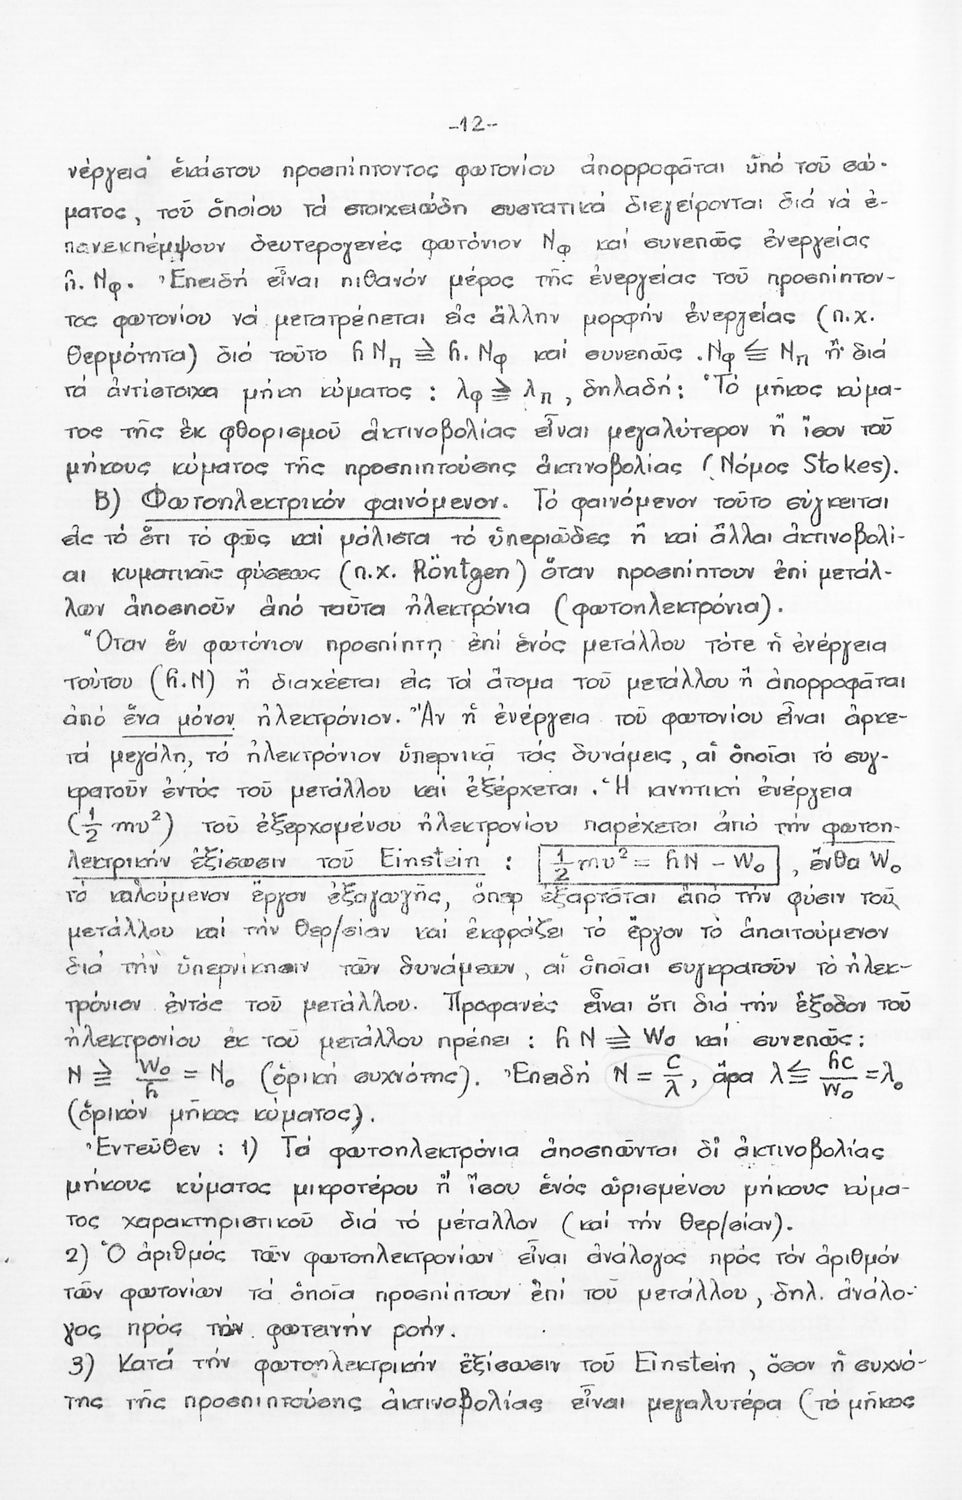 -12-
νέργεια ἑκάστου προσπίπτοντος φωτονίου ἀπορροφᾶται ὑπό τοῦ σώ-
ματος, τοῦ ὁποίου τά στοιχειώδη συστατικά διεγείρονται διά νά ἐ-
πανεκπέμψουν δευτερογενές φωτόνιον Nφ καί συνεπῶς ἐνεργείας
h. Nφ. Ἐπειδή εἶναι πιθανόν μέρος τῆς ἐνεργείας τοῦ προσπίπτον-
τος φωτονίου νά μετατρέπεται εἰς ἄλλην μορφήν ἐνεργείας (π.χ.
θερμότητα) διά τοῦτο h Nπ ≧ h. Nφ καί συνεπῶς .Nφ ≦ Nπ ἤ διά
τά ἀντίστοιχα μήκη κύματος : λφ ≧ λπ, δηλαδή: Τό μῆκος κύμα-
τος τῆς ἐκ φθορισμοῦ ἀκτινοβολίας εἶναι μεγαλύτερον ἤ ἴσον τοῦ
μήκους κύματος τῆς προσπιπτούσης ἀκτινοβολίας (Νόμος Stokes).
Β) Φωτοηλεκτρικόν φαινόμενον. Τό φαινόμενον τοῦτο σύγκειται
εἰς τό ὅτι τό φῶς καί μάλιστα τό ὑπεριῶδες ἤ καί ἄλλαι ἀκτινοβολί-
αι κυματικῆς φύσεως (π.χ. Röntgen) ὅταν προσπίπτουν ἐπί μετάλ-
λων ἀποσποῦν ἀπό ταῦτα ἠλεκτρόνια (φωτοηλεκτρόνια).
Ὅταν ἕν φωτόνιον προσπίπτῃ ἐπί ἑνός μετάλλου τότε ἡ ἐνέργεια
τούτου (h.N) ἤ διαχέεται εἰς τά ἄτομα τοῦ μετάλλου ἤ ἀπορροφᾶται
ἀπό ἕνα μόνον ἠλεκτρόνιον. Ἄν ἡ ἐνέργεια τοῦ φωτονίου εἶναι ἀρκε-
τά μεγάλη, τό ἠλεκτρόνιον ὑπερνικᾷ τάς δυνάμεις, αἱ ὁποῖαι τό συγ-
κρατοῦν ἐντός τοῦ μετάλλου καί ἐξέρχεται. Ἡ κινητική ἐνέργεια
(½ mυ²) τοῦ ἐξερχομένου ἠλεκτρονίου παρέχεται ἀπό τήν φωτοη-
λεκτρικήν ἐξίσωσιν τοῦ Einstein : ½ mυ² = hN - Wo , ἔνθα Wo
τό καλούμενον ἔργον ἐξαγωγῆς, ὅπερ ἐξαρτᾶται ἀπό τήν φύσιν τοῦ
μετάλλου καί τήν θερ/σίαν καί ἐκφράζει τό ἔργον τό ἀπαιτούμενον
διά τήν ὑπερνίκησιν τῶν δυνάμεων, αἱ ὁποῖαι συγκρατοῦν τό ἠλεκ-
τρόνιον ἐντός τοῦ μετάλλου. Προφανές εἶναι ὅτι διά τήν ἔξοδον τοῦ
ἠλεκτρονίου ἐκ τοῦ μετάλλου πρέπει : h N ≧ Wo καί συνεπῶς:
N ≧ Wo/h = No (ὁρική συχνότης). Ἐπειδή N = C/λ, ἄρα λ ≦ hc/Wo = λo
(ὁρικόν μῆκος κύματος).
Ἐντεῦθεν : 1) Τά φωτοηλεκτρόνια ἀποσπῶνται δι' ἀκτινοβολίας
μήκους κύματος μικροτέρου ἤ ἴσου ἑνός ὡρισμένου μήκους κύμα-
τος χαρακτηριστικοῦ διά τό μέταλλον (καί τήν θερ/σίαν).
2) Ὁ ἀριθμός τῶν φωτοηλεκτρονίων εἶναι ἀνάλογος πρός τόν ἀριθμόν
τῶν φωτονίων τά ὁποῖα προσπίπτουν ἐπί τοῦ μετάλλου, δηλ. ἀνάλο-
γος πρός τήν φωτεινήν ροήν.
3) Κατά τήν φωτοηλεκτρικήν ἐξίσωσιν τοῦ Einstein, ὅσον ἡ συχνό-
της τῆς προσπιπτούσης ἀκτινοβολίας εἶναι μεγαλυτέρα (τό μῆκος